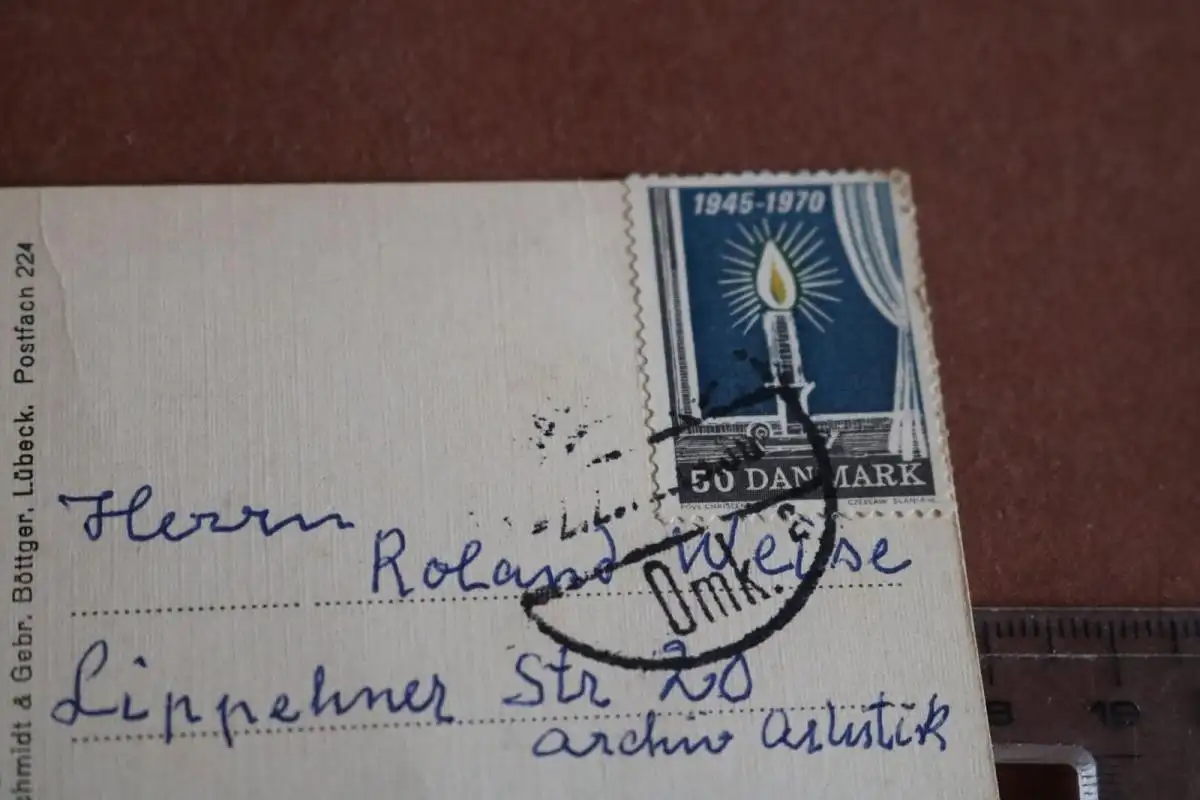 1945-1970
50 DANMARK
POVL CHRISTENSEN CZESŁAW SLANIA SC.
Omk.
Herrn
Roland Weise
Lippehner Str 20
archiv Artistik
chmidt & Gebr. Böttger, Lübeck. Postfach 224
19